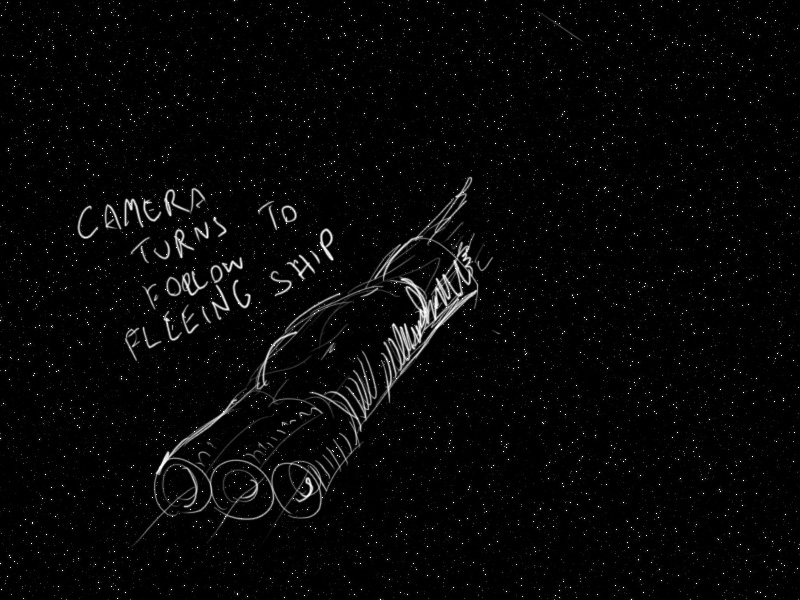 CAMERA
TURNS TO
FOLLOW
FLEEING SHIP